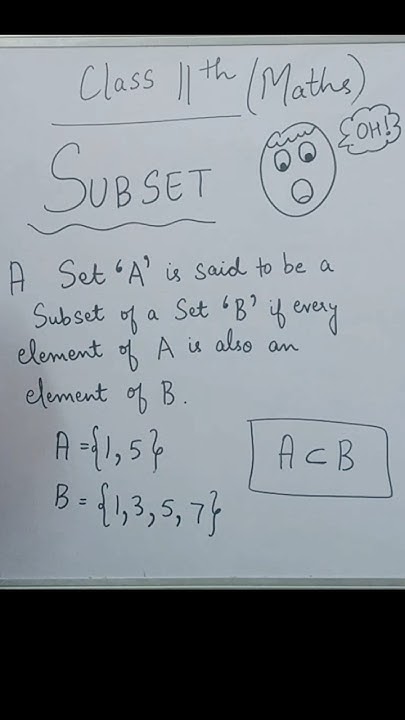 Class 11th (Maths)
OH!
SUBSET
A Set 'A' is said to be a
Subset of a Set 'B' if every
element of A is also an
element of B.
A = {1, 5}
A ⊂ B
B = {1, 3, 5, 7}